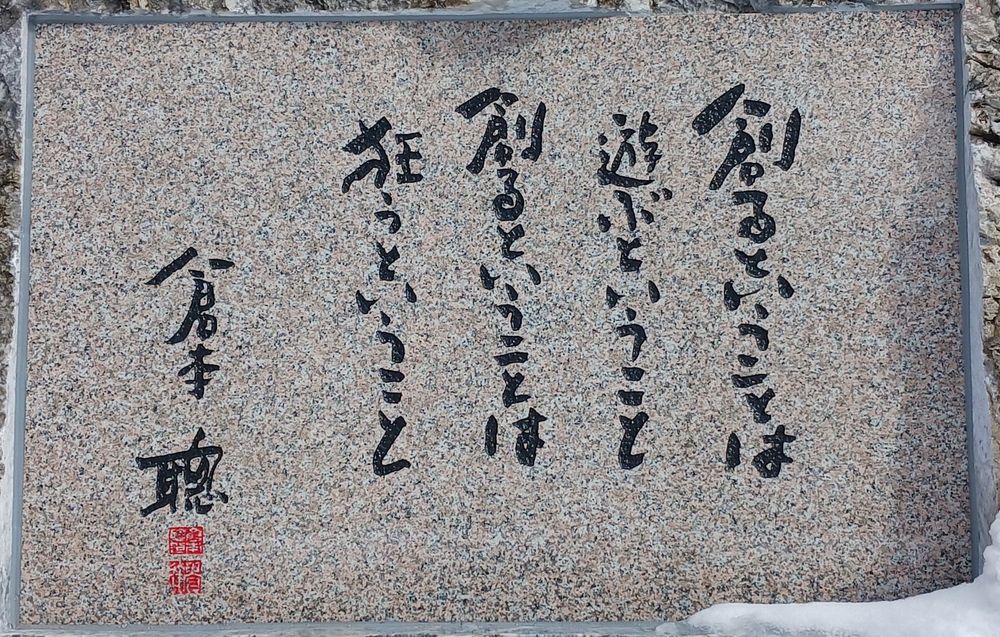 創るということは
遊ぶということ
創るということは
狂うということ
倉本 聰